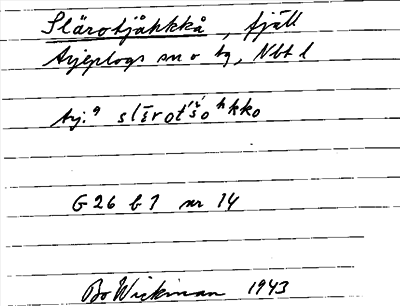 Slärotjåkkkå, fjäll
Arjeplogs sn o tg, Nbt l
Arj. a slērot'š́o hkko
G 26 b 1 nr 14
Bo Wickman 1943